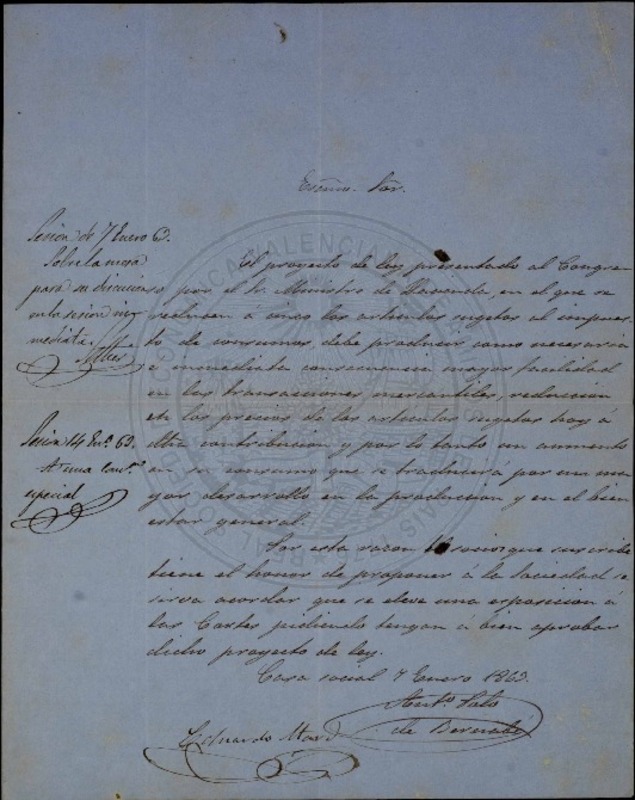 Escmo. Sor.
Sesion de 7 Enero 63.
Sobre la mesa
para su discucion
en la sesion in-
mediata.
Sesion 14 En.º 63.
A una com.ⁿ
especial
El proyecto de ley presentado al Congre-
so por el Sr. Ministro de Hacienda, en el que se
reducen á cinco los articulos sugetos al impues-
to de consumos debe producir como necesaria
é inmediata consecuencia mayor facilidad
en las transacciones mercantiles, reduccion
en los precios de los articulos sugetos hoy á
dha contribucion y por lo tanto un aumento
en su consumo que se traducirá por un ma-
yor desarrollo en la produccion y en el bien
estar general.
Por esta razon el socio que suscribe
tiene el honor de proponer á la Sociedad se
sirva acordar que se eleve una esposicion á
las Cortes pidiendo tengan á bien aprobar
dicho proyecto de ley.
Casa social 7 Enero 1863.
Ant.º
de
Eduardo
REAL SOCIEDAD ECONÓMICA VALENCIANA DE AMIGOS DEL PAIS 1776